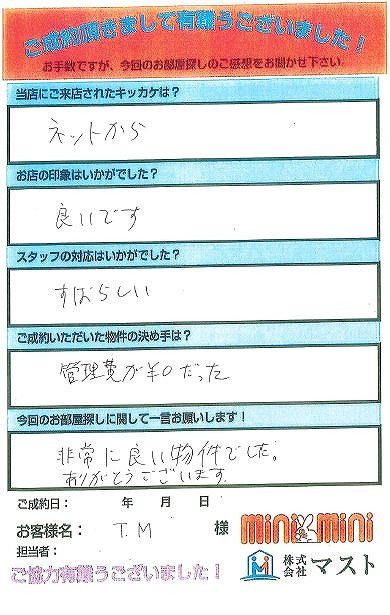 ご成約頂きまして有難うございました！
お手数ですが、今回のお部屋探しのご感想をお聞かせ下さい。
当店にご来店されたキッカケは？
ネットから
お店の印象はいかがでした？
良いです
スタッフの対応はいかがでした？
すばらしい
ご成約いただいた物件の決め手は？
管理費が¥0だった
今回のお部屋探しに関して一言お願いします！
非常に良い物件でした。
ありがとうございます。
ご成約日： 年 月 日
お客様名： T.M 様
mini mini
担当者：
株式会社 マスト
ご協力有難うございました！